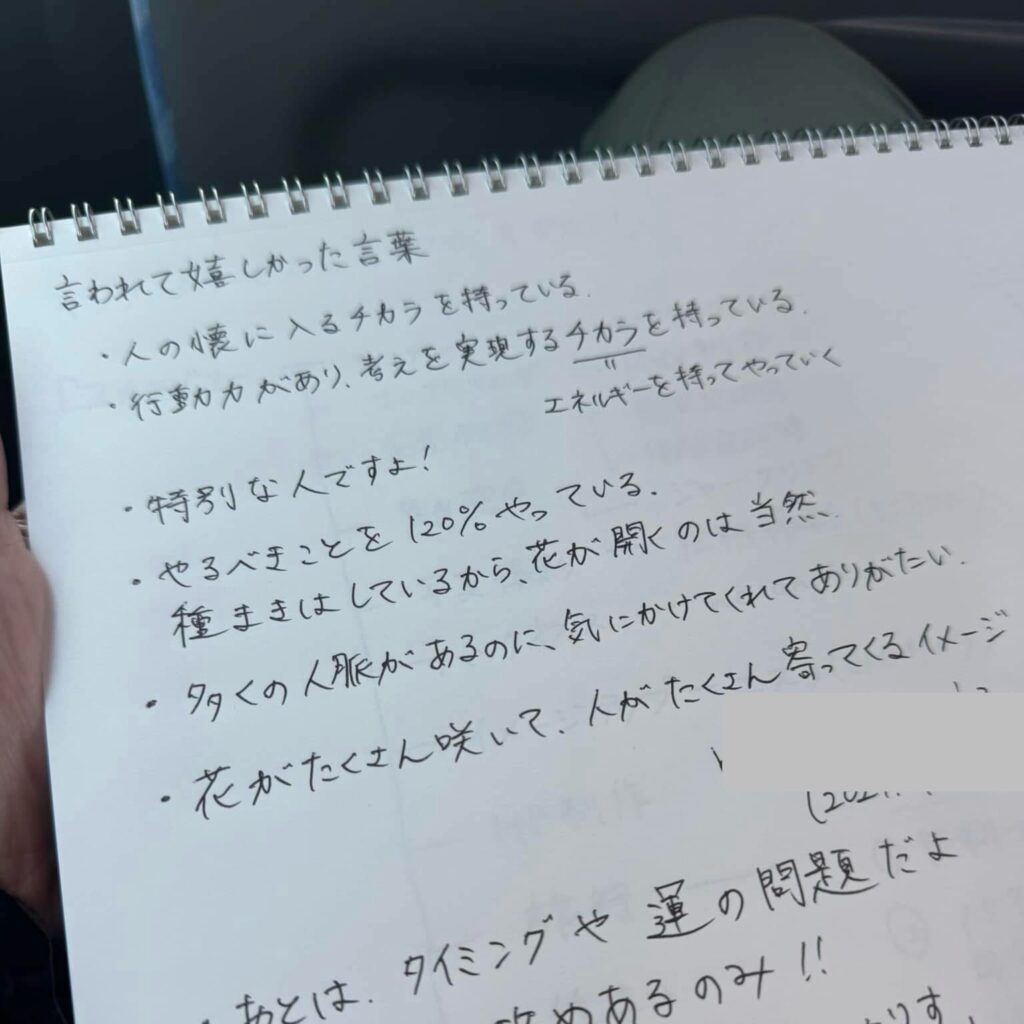 言われて嬉しかった言葉
・人の懐に入るチカラを持っている.
・行動力があり、考えを実現するチカラを持っている.
〃
エネルギーを持ってやっていく
・特別な人ですよ!
・やるべきことを120%やっている.
種まきはしているから、花が開くのは当然.
・多くの人脈があるのに、気にかけてくれてありがたい.
・花がたくさん咲いて、人がたくさん寄ってくるイメージ
(202
・あとは、タイミングや運の問題だよ
めあるのみ!!